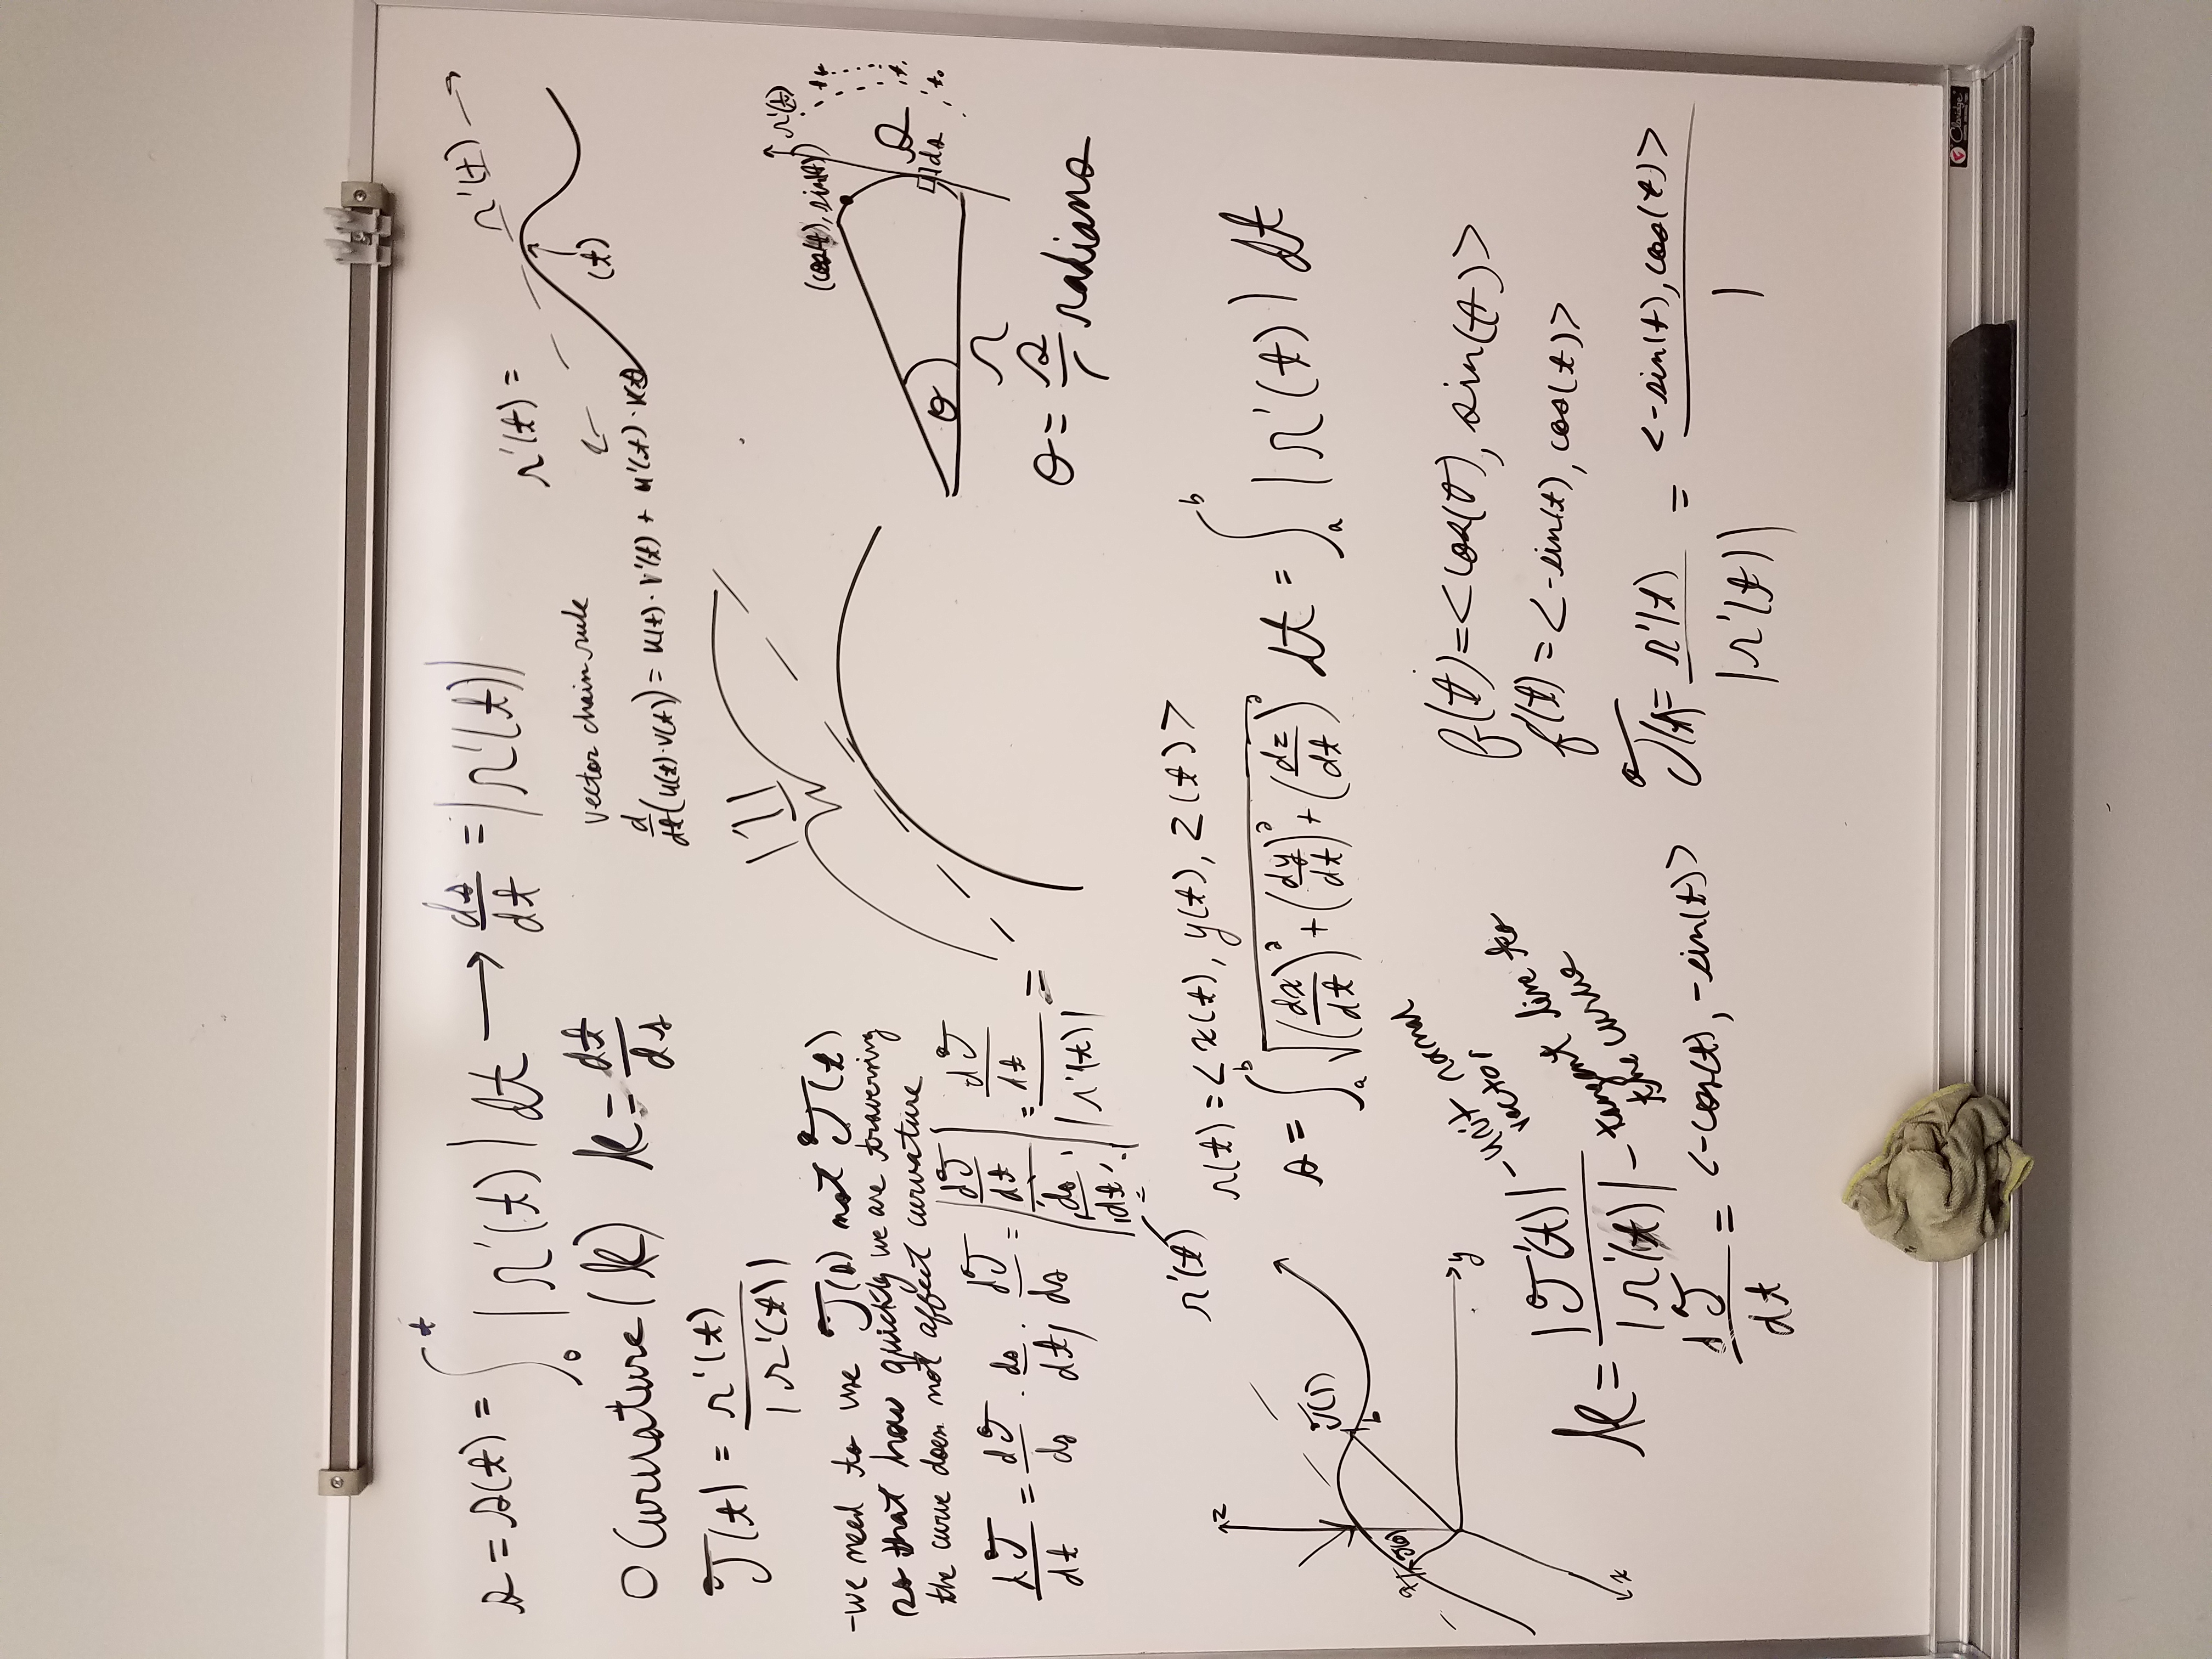 s = s(t) = ∫₀ᵗ |r'(t)| dt → ds/dt = |r'(t)|
r'(t) =
r'(t) →
(t)
O Curvature (k) k = dt/ds
vector chain rule
d/dt (u(t)·v(t)) = u(t)·v'(t) + u'(t)·v(t)
T(t) = r'(t)/|r'(t)|
|T|
-we need to use T(s) not T(t)
so that how quickly we are traversing
the curve does not affect curvature
dT/dt = dT/ds · ds/dt, dT/ds = |dT/dt / ds/dt| = dT/dt / |r'(t)| =
r'(t)
(cos(t), sin(t))
r'(t)
s
ds
θ
r
θ = s/r radians
r(t) = <x(t), y(t), z(t)>
s = ∫ₐᵇ √((dx/dt)² + (dy/dt)² + (dz/dt)²) dt = ∫ₐᵇ |r'(t)| dt
z
T(1)
b
a
T(0)
y
x
k = |T'(t)|/|r'(t)|
- unit normal
vector
- tangent line to
the curve
dT/dt = <-cos(t), -sin(t)>
f(t) = <cos(t), sin(t)>
f'(t) = <-sin(t), cos(t)>
T(t) = r'(t)/|r'(t)| = <-sin(t), cos(t)>/1
Claridge